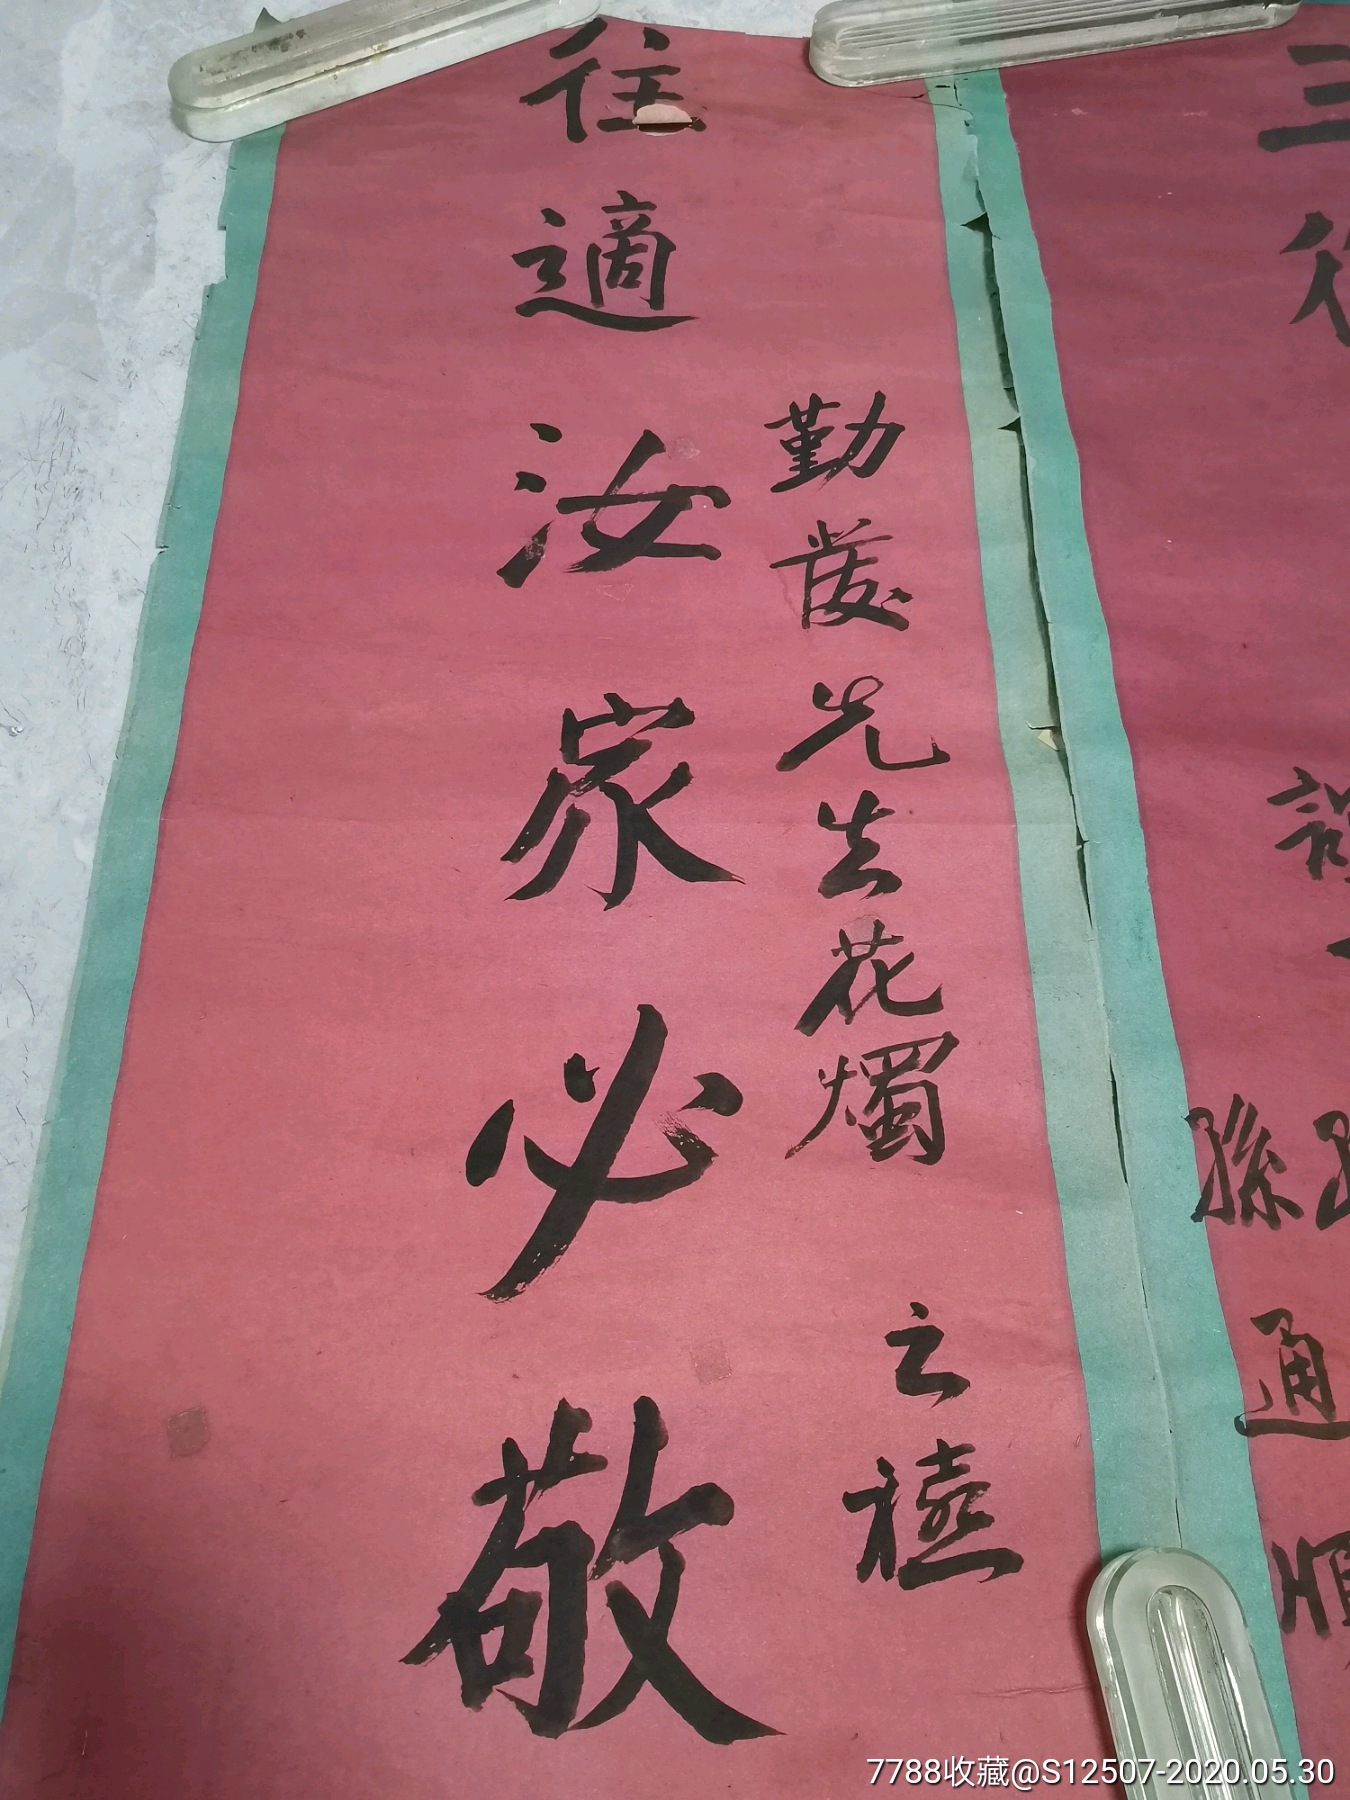 三從
孫
通
順
勤發先生花燭之禧
往適汝家必敬
7788收藏@S12507-2020.05.30